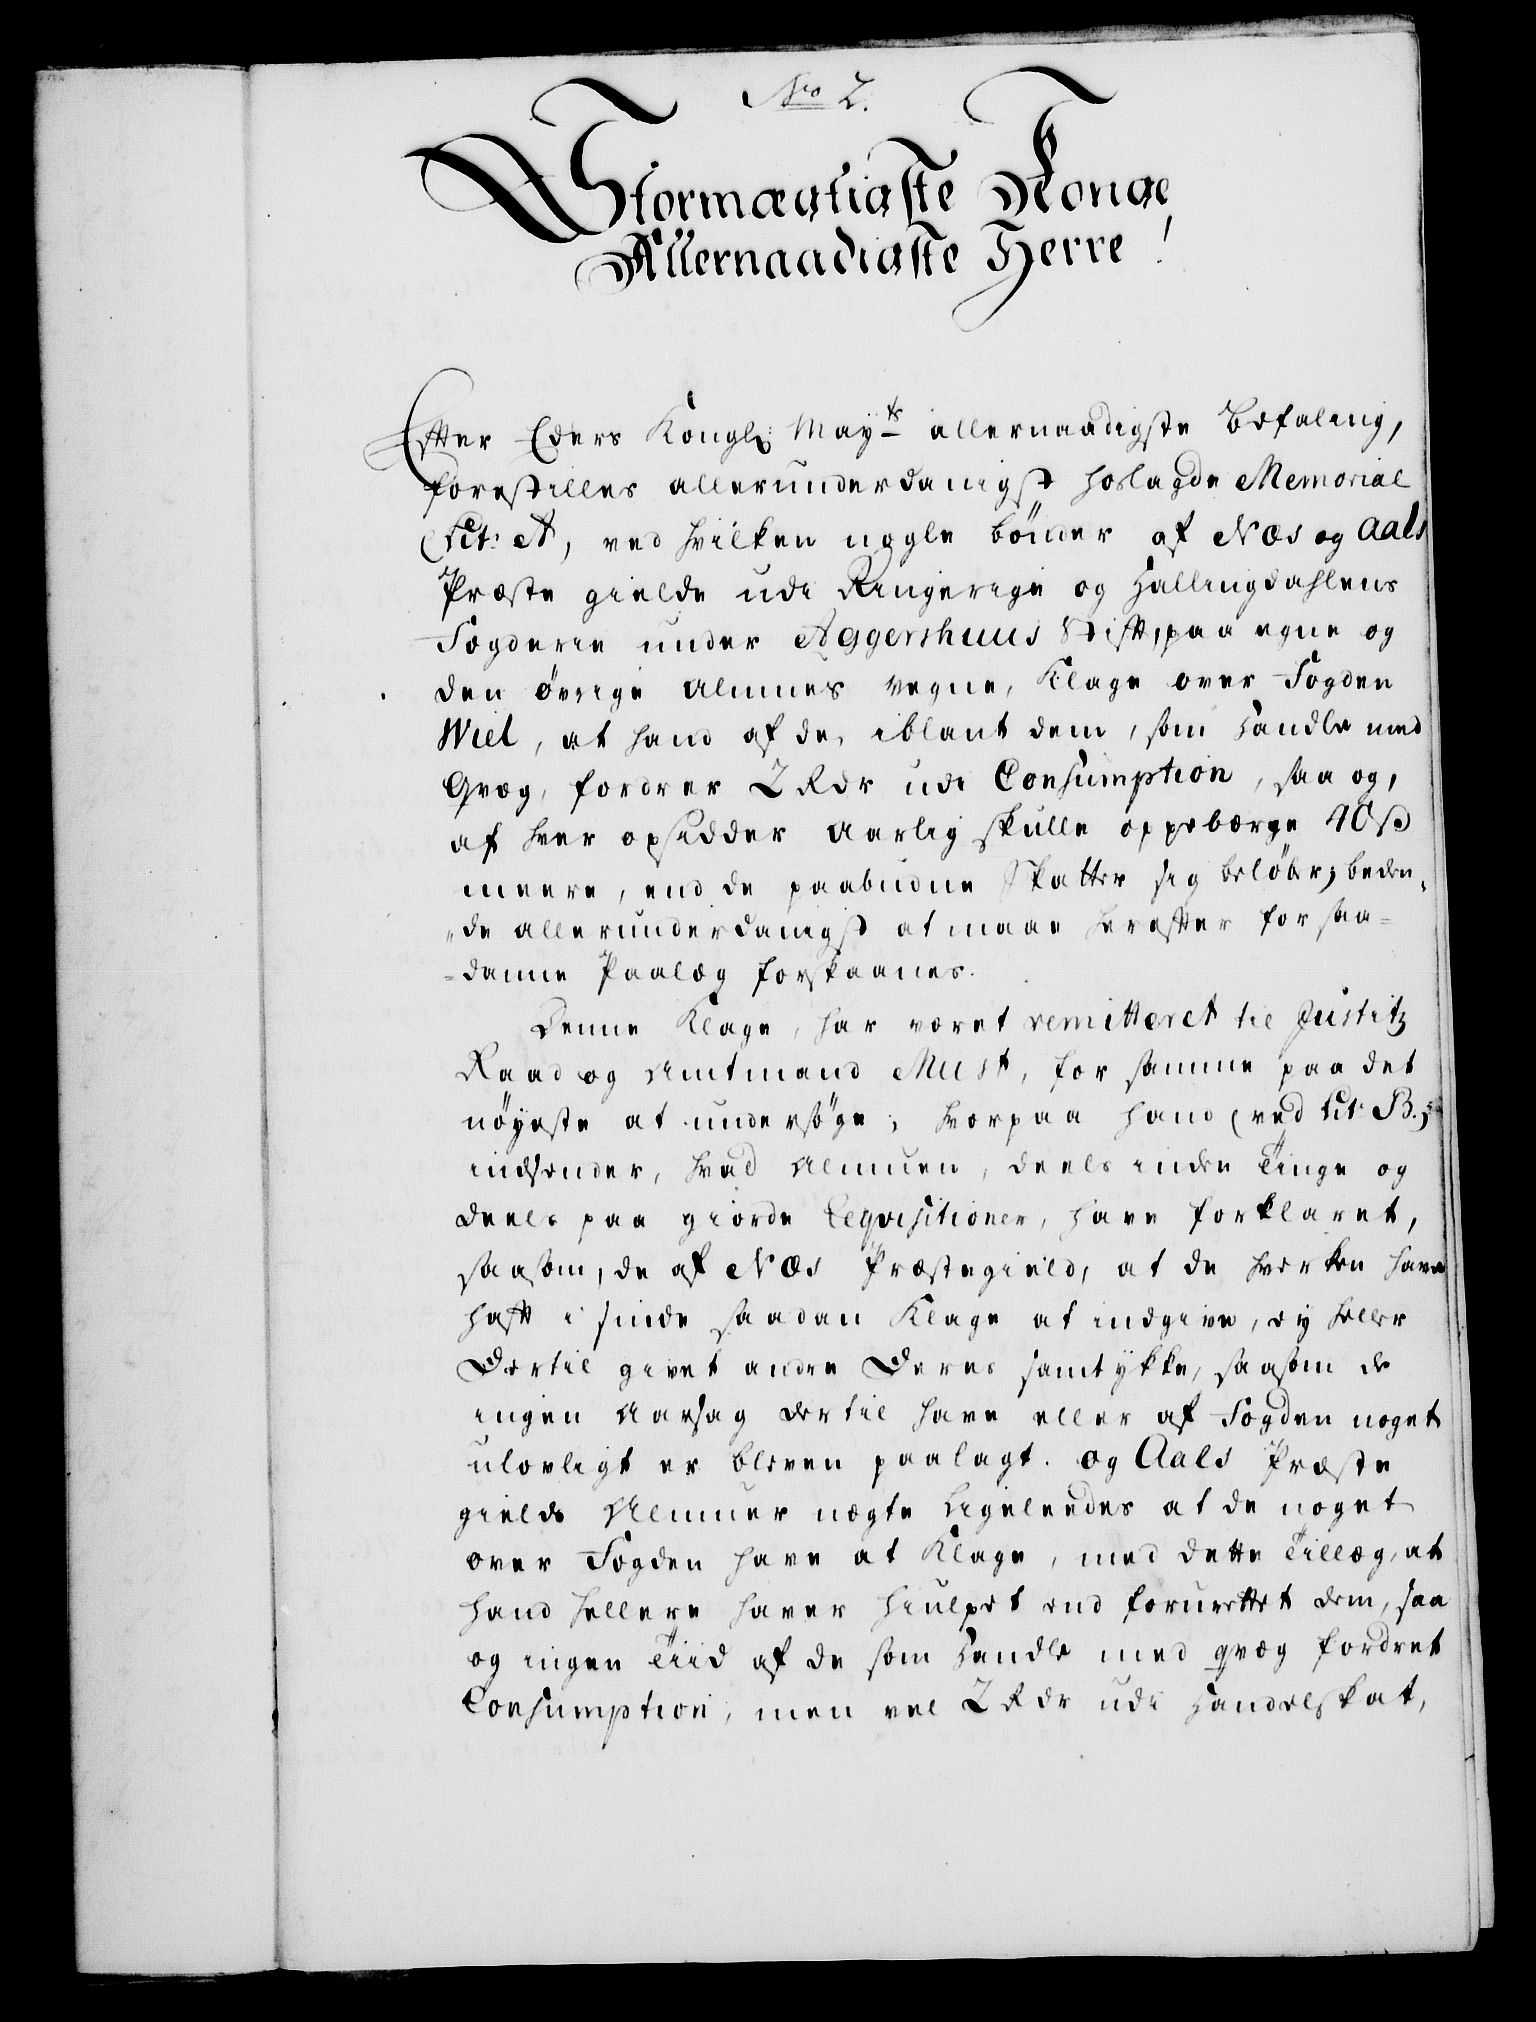 No 2.
Stormægtigste Konge
Allernaadigste Herre!
Efter Eders Kongl: Mayts allernaadigste Befaling,
forestilles allerunderdanigst hoslagde Memorial
(Lit: A, ved hvilken nogle bönder af Næs og Aals
Præste gielde udi Ringerige og Hallingdahlens
Fogderie under Aggershuus Stift, paa egne og
den övrige Almues vegne, Klage over Fogden
Wiel, at hand af de, iblant dem, som handle med
Qvæg, fordrer 2 Rdr udi Consumption, saa og,
af hver opsidder aarlig skulle oppebærge 40 s
meere, end de paabudne Skatter sig belöber; beden„
„de allerunderdanigst at maae herefter for saa=
=danne Paalæg forskaanes.
Denne Klage, har været remitteret til Justitz
Raad og Amtmand Must, for samme paa det
nöyeste at undersöge; hvorpaa hand (ved Lit: B.)
indsender, hvad Almuen, deels inden Tinge og
deels paa giorde Reqvisitioner, have forklaret,
saasom, de af Næs Præstegield, at de hverken have
haft i sinde saadan Klage at indgive, ey heller
Dertil givet andre Deres samtykke, saasom de
ingen Aarsag dertil have eller af Fogden noget
ulovligt er bleven paalagt. og Aals Præste
gields Almuer nægte ligeleedes at de noget
over Fogden have at Klage, med dette Tillæg, at
hand hellere haver hiulpet end forurettet dem, saa
og ingen Tiid af de som handle med qvæg fordret
Consumption, men vel 2 Rdr udi Handelskat,